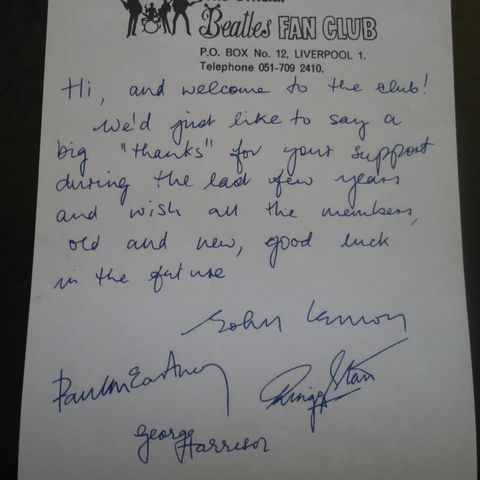 The Official
Beatles FAN CLUB
P.O. BOX No. 12, LIVERPOOL 1.
Telephone 051-709 2410.
Hi, and welcome to the club!
We'd just like to say a
big "thanks" for your support
during the last few years
and wish all the members,
old and new, good luck
in the future
John Lennon
Paul McCartney
Ringo Starr
George
Harrison